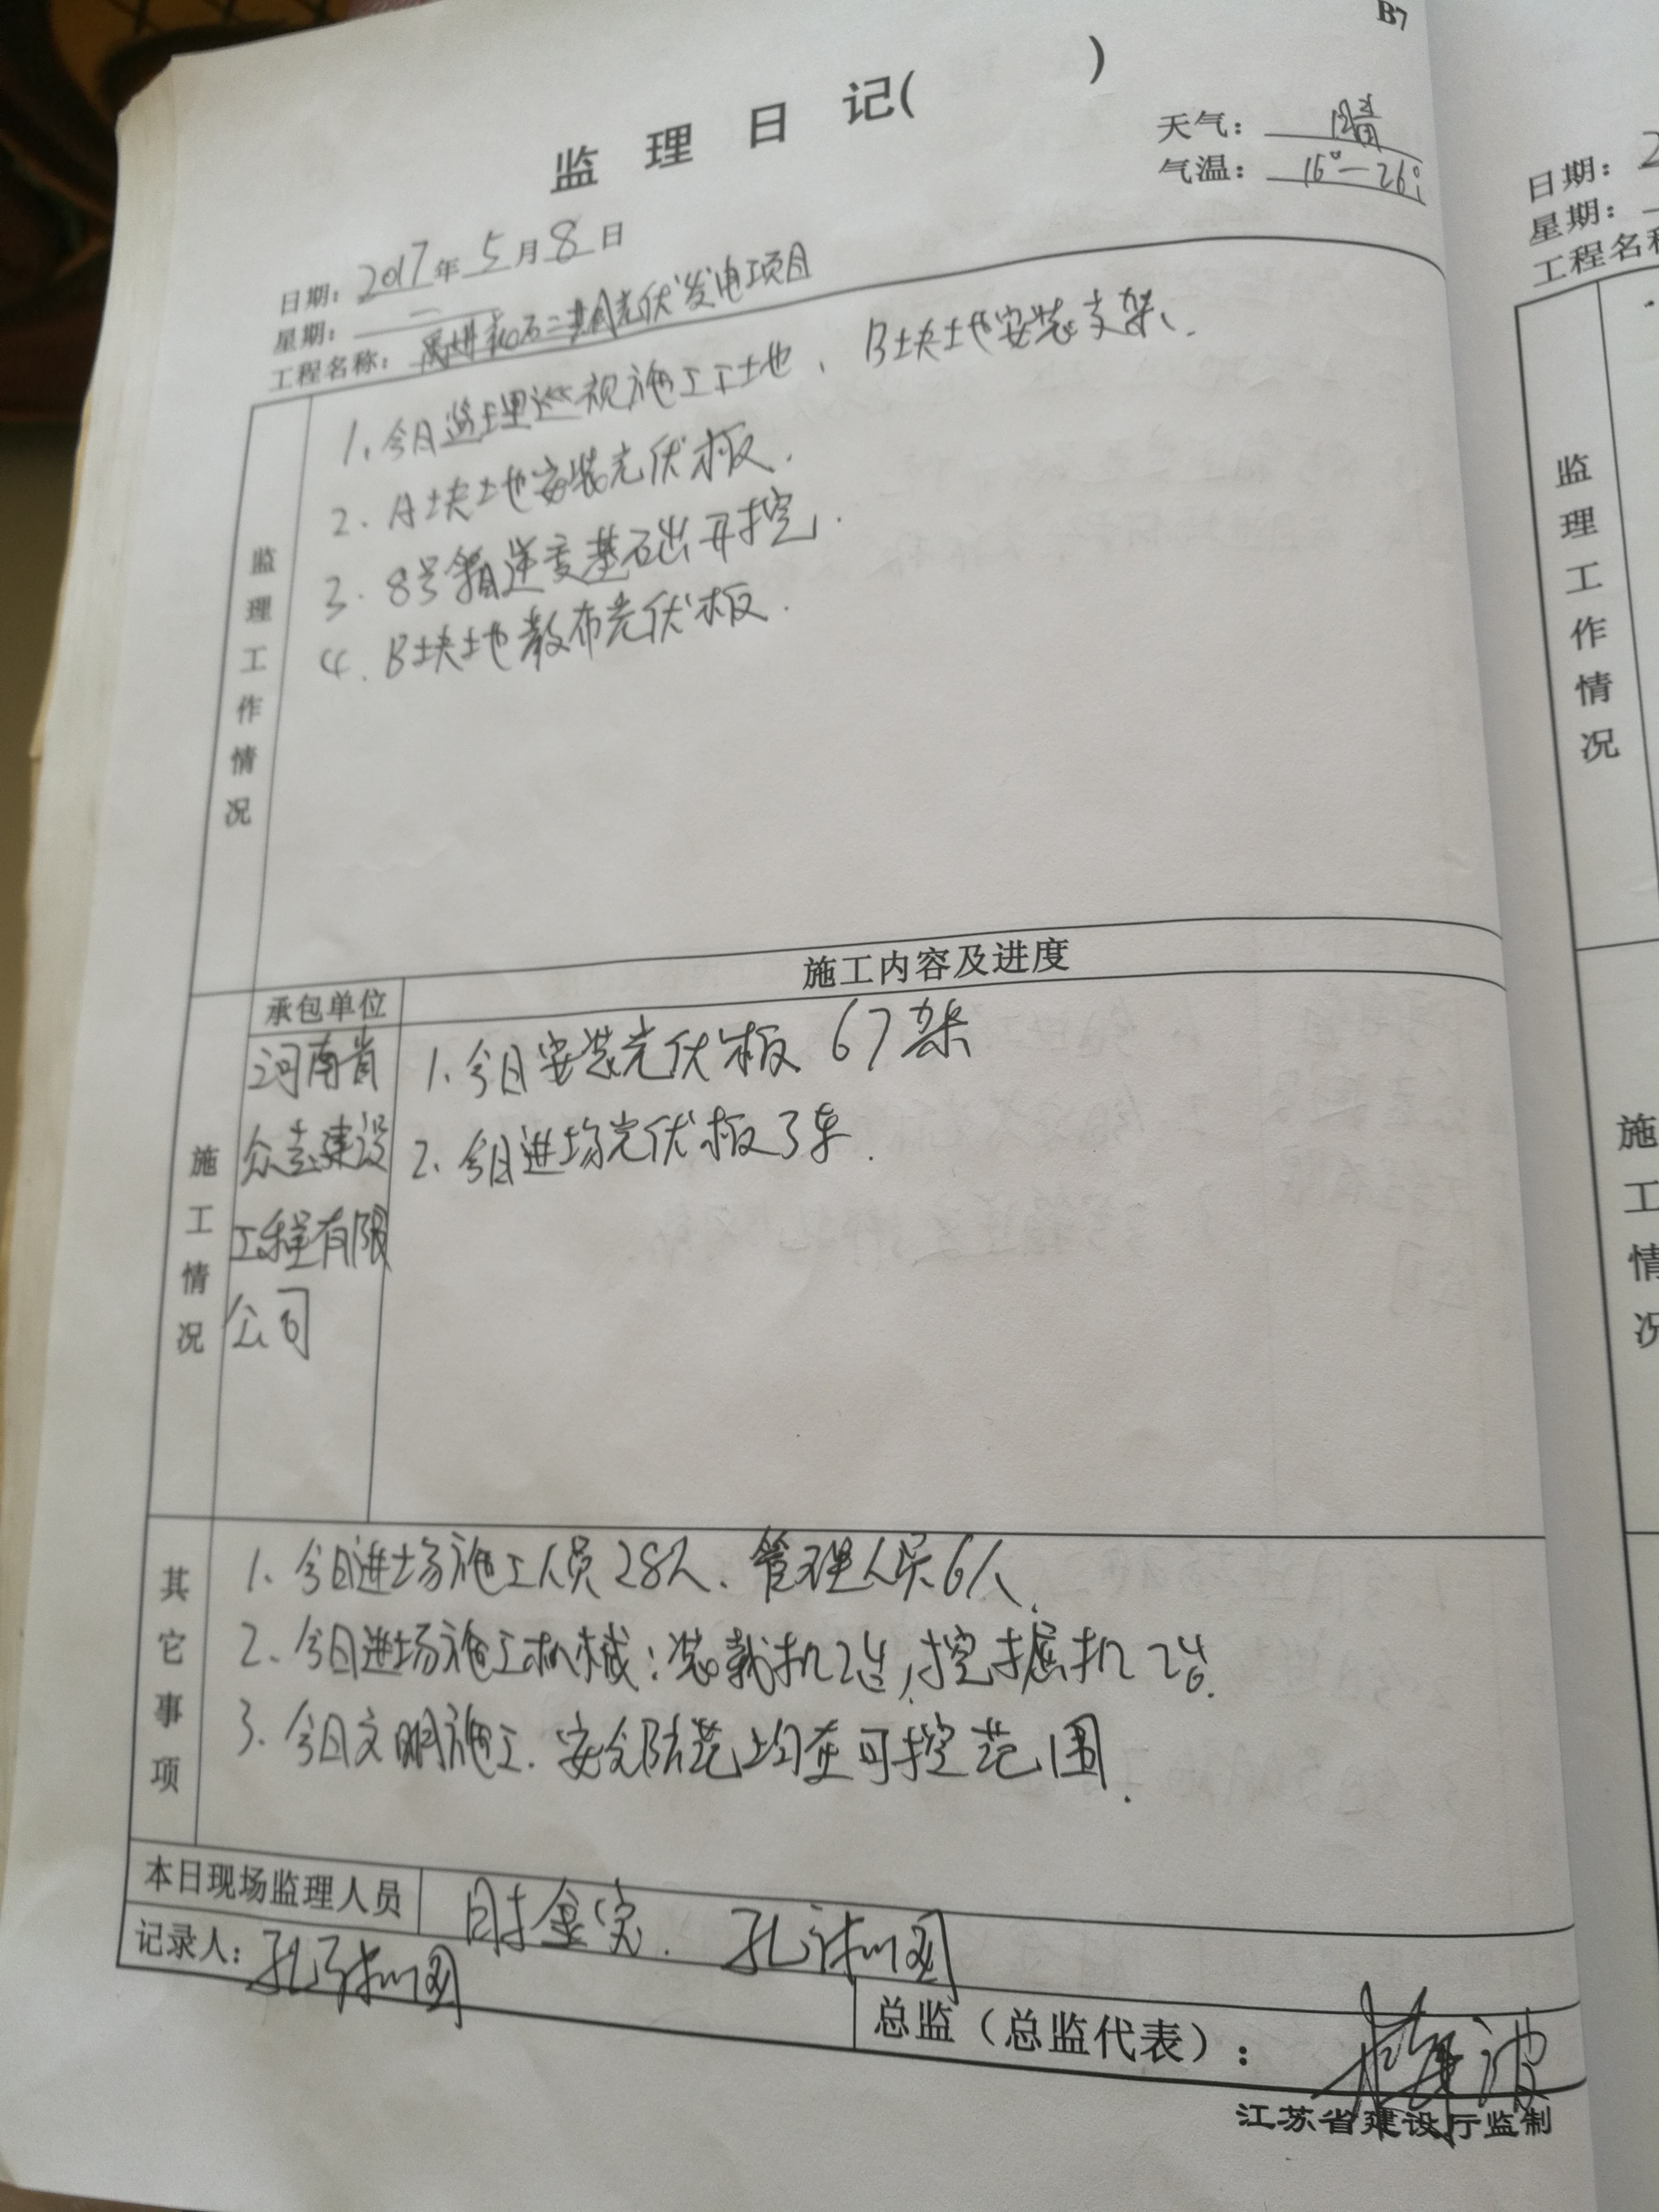 B7
监 理 日 记( )
天气: 晴
气温: 16°—26°
日期: 2017年5月8日
星期: 一
工程名称: 二期光伏发电项目
监理工作情况
1、今日监理巡视施工工地、B块土地安装支架、
2. A块土地安装光伏板.
3. 8号箱逆变基础开挖.
4. B块土地散布光伏板.
施工情况
承包单位
施工内容及进度
河南省
建设
工程有限
公司
1、今日安装光伏板 67架
2、今日进场光伏板3车.
其它事项
1、今日进场施工人员28人、管理人员6人、
2、今日进场施工机械:装载机2台,挖掘机2台.
3. 今日文明施工.安全防范均在可控范围.
本日现场监理人员
记录人:
总监(总监代表):
江苏省建设厅监制
日期: 2
星期:
工程名称
监理工作情况
施工情况